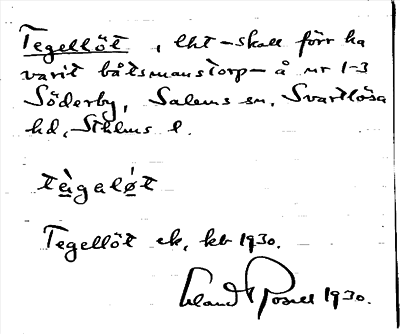 Tegellöt, lht – skall förr ha
varit båtsmanstorp – å nr 1-3
Söderby, Salems sn, Svartlösa
hd, Sthlms l.
tègalǿt
Tegellöt ek, kb 1930.
Erland Rosell 1930.